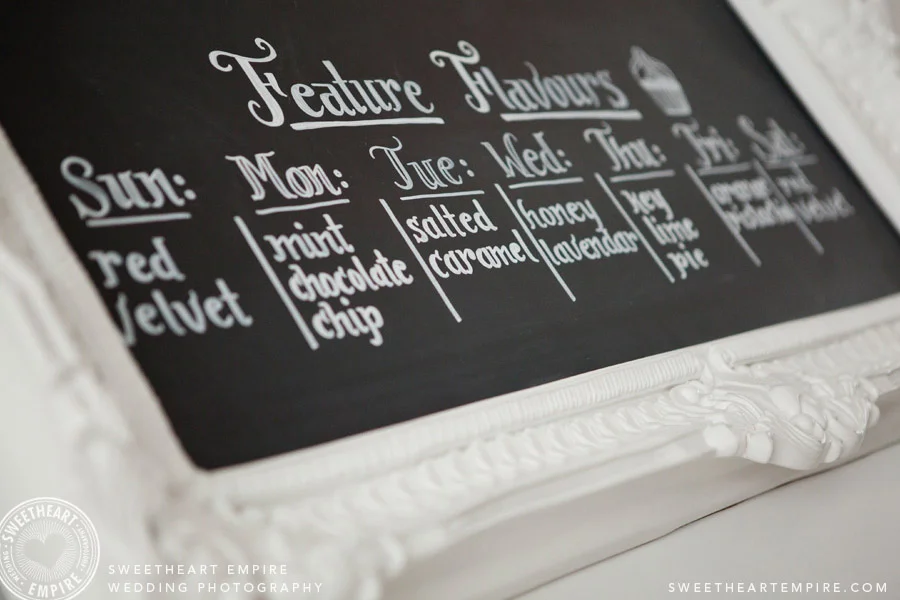 Feature Flavours
Sun:
red
velvet
Mon:
mint
chocolate
chip
Tue:
salted
caramel
Wed:
honey
lavendar
Thu:
key
lime
pie
Fri:
orange
pistachio
Sat:
red
velvet
SWEETHEART
WEDDING
EMPIRE
SWEETHEART EMPIRE
WEDDING PHOTOGRAPHY
SWEETHEARTEMPIRE.COM